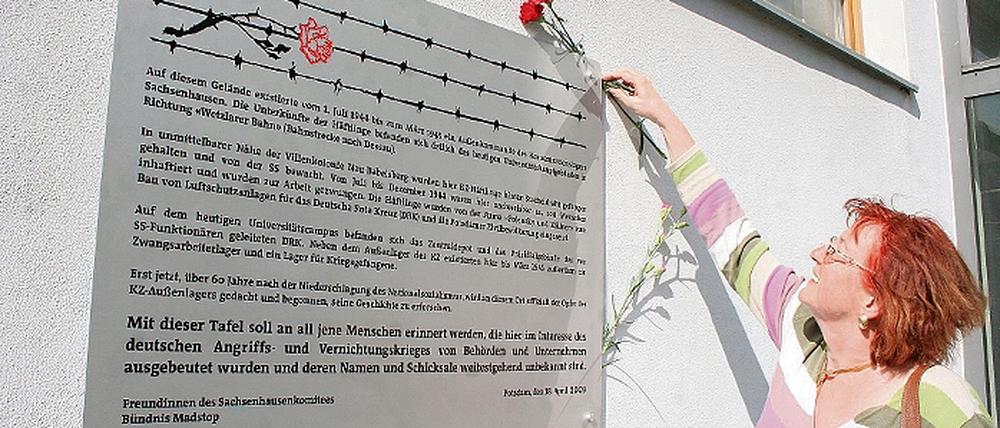 Auf diesem Gelände existierte vom 1. Juli 1944 bis zum März 1945 ein Außenkommando des Konzentrationslagers
Sachsenhausen. Die Unterkünfte der Häftlinge befanden sich östlich des heutigen in
Richtung »Wetzlarer Bahn« (Bahnstrecke nach Dessau).
In unmittelbarer Nähe der Villenkolonie Neu Babelsberg wurden hier KZ-Häftlinge hinter Stacheldraht gefangen
gehalten und von der SS bewacht. Von Juli bis Dezember 1944 waren hier Menschen
inhaftiert und wurden zur Arbeit gezwungen. Die Häftlinge wurden von der Firma zum
Bau von Luftschutzanlagen für das Deutsche Rote Kreuz (DRK) und die Potsdamer eingesetzt.
Auf dem heutigen Universitätscampus befanden sich das Zentraldepot und das der von
SS-Funktionären geleiteten DRK. Neben dem Außenlager des KZ existierten hier bis März 1945 außerdem ein
Zwangsarbeiterlager und ein Lager für Kriegsgefangene.
Erst jetzt, über 60 Jahre nach der Niederschlagung des Nationalsozialismus, wird an diesem Ort offiziell der Opfer des
KZ-Außenlagers gedacht und begonnen, seine Geschichte zu erforschen.
Mit dieser Tafel soll an all jene Menschen erinnert werden, die hier im Interesse des
deutschen Angriffs- und Vernichtungskrieges von Behörden und Unternehmen
ausgebeutet wurden und deren Namen und Schicksale weitestgehend unbekannt sind.
Potsdam, den 18. April 2009
Freundinnen des Sachsenhausenkomitees
Bündnis Madstop